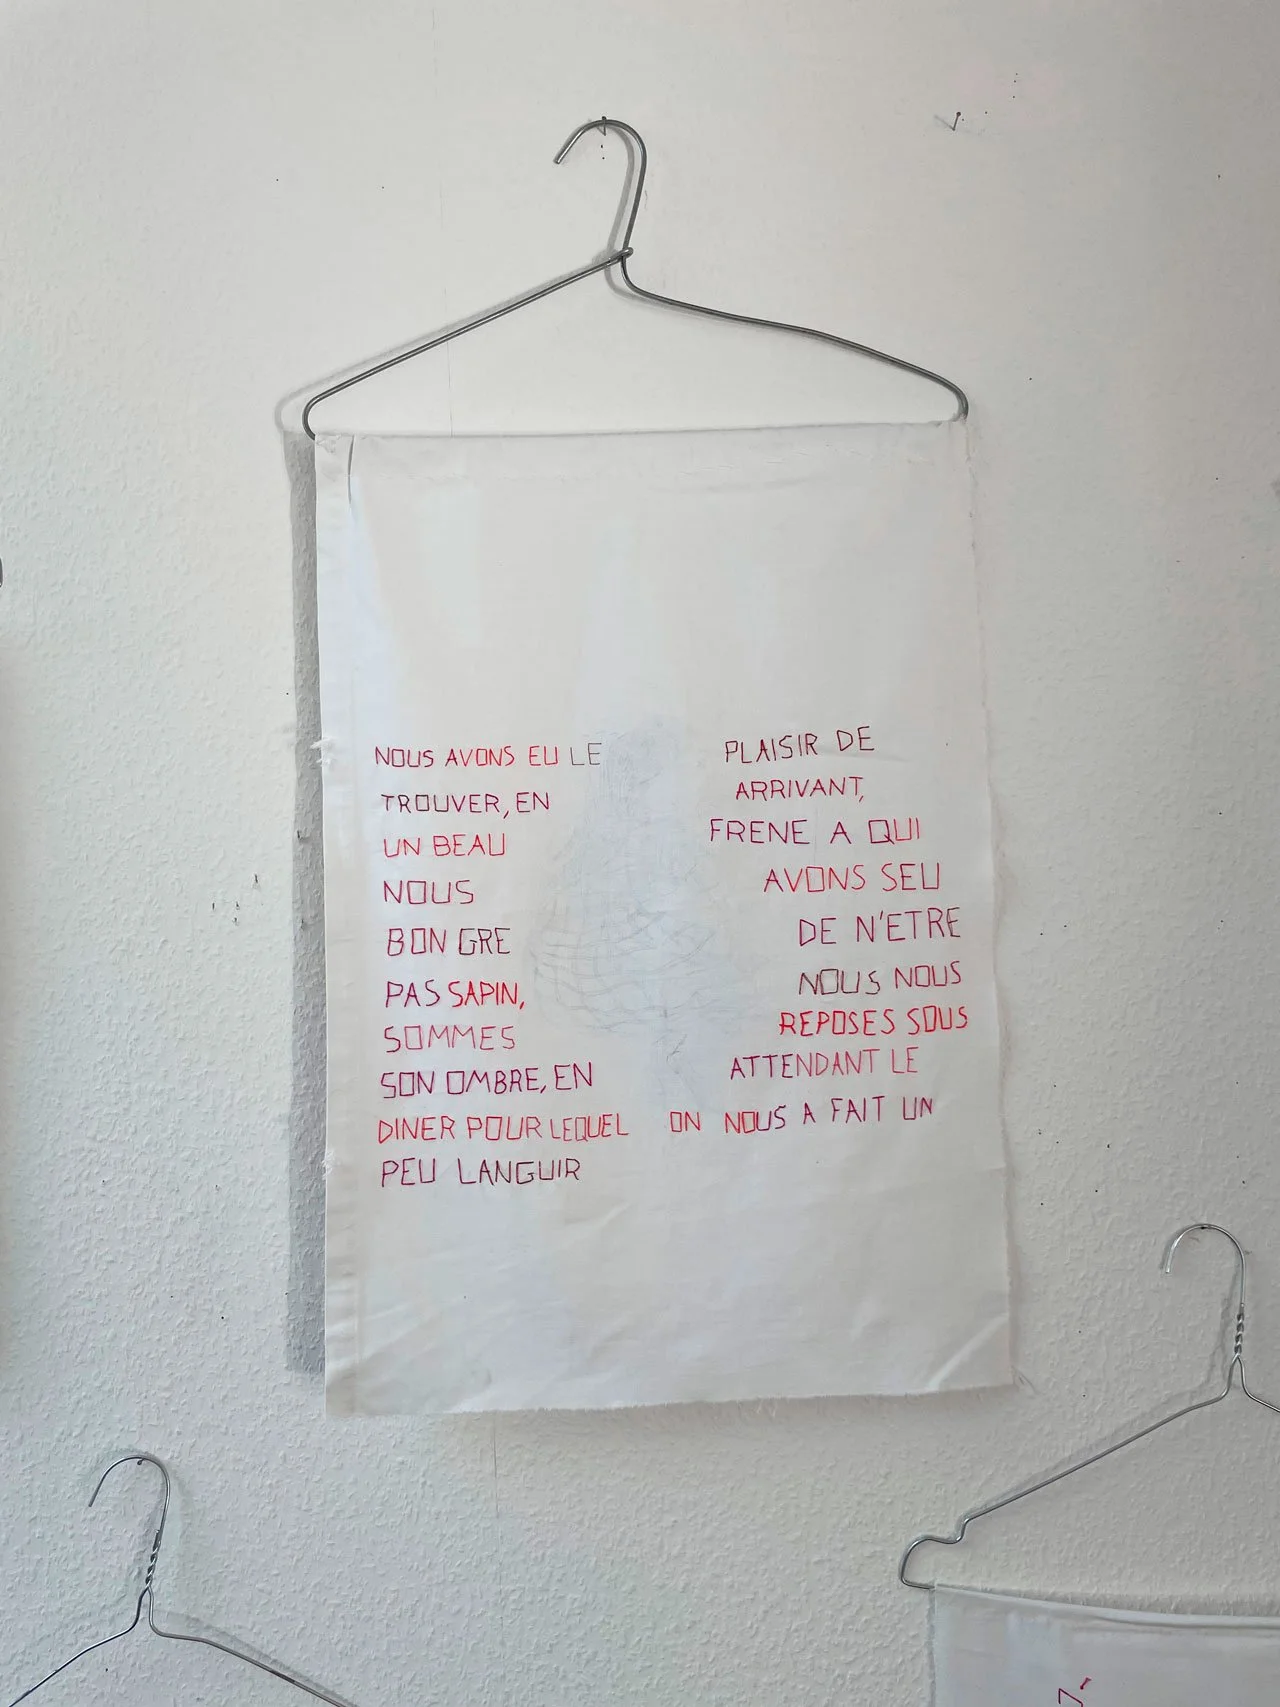 NOUS AVONS EU LE PLAISIR DE
TROUVER, EN ARRIVANT,
UN BEAU FRENE A QUI
NOUS AVONS SEU
BON GRE DE N'ETRE
PAS SAPIN, NOUS NOUS
SOMMES REPOSES SOUS
SON OMBRE, EN ATTENDANT LE
DINER POUR LEQUEL ON NOUS A FAIT UN
PEU LANGUIR